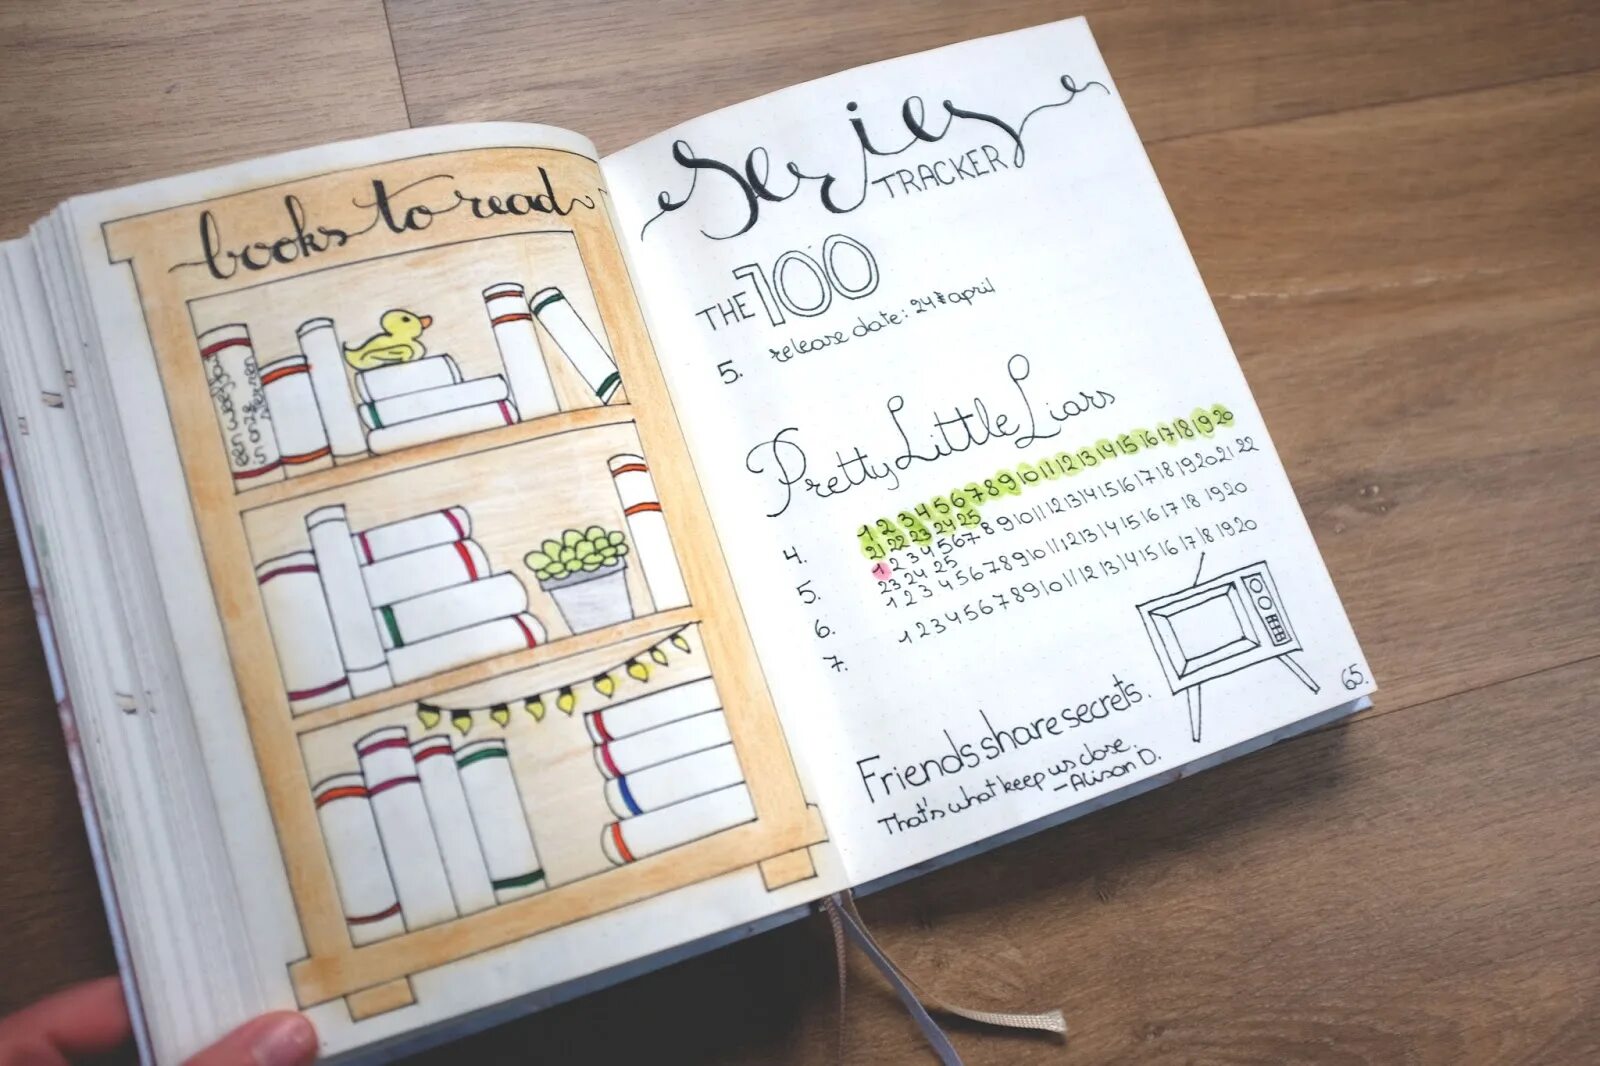 books to read
een weeffout
in onze
sterren
Series
TRACKER
THE 100
5. release date: 24 april
Pretty Little Liars
4. 1 2 3 4 5 6 7 8 9 10 11 12 13 14 15 16 17 18 19 20
21 22 23 24 25
5. 1 2 3 4 5 6 7 8 9 10 11 12 13 14 15 16 17 18 19 20 21 22
23 24 25
6. 1 2 3 4 5 6 7 8 9 10 11 12 13 14 15 16 17 18 19 20
7. 1 2 3 4 5 6 7 8 9 10 11 12 13 14 15 16 17 18 19 20
Friends share secrets.
That's what keep us close.
- Alison D.
65.